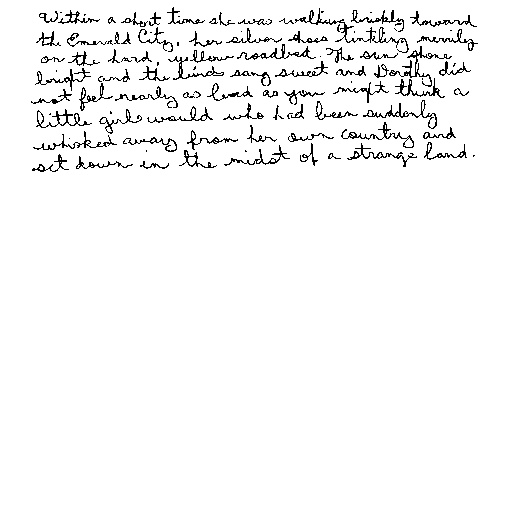 Within a short time she was walking briskly toward
the Emerald City, her silver shoes tinkling merrily
on the hard, yellow roadbed. The sun shone
bright and the birds sang sweet and Dorothy did
not feel nearly as bad as you might think a
little girl would who had been suddenly
whisked away from her own country and
set down in the midst of a strange land.